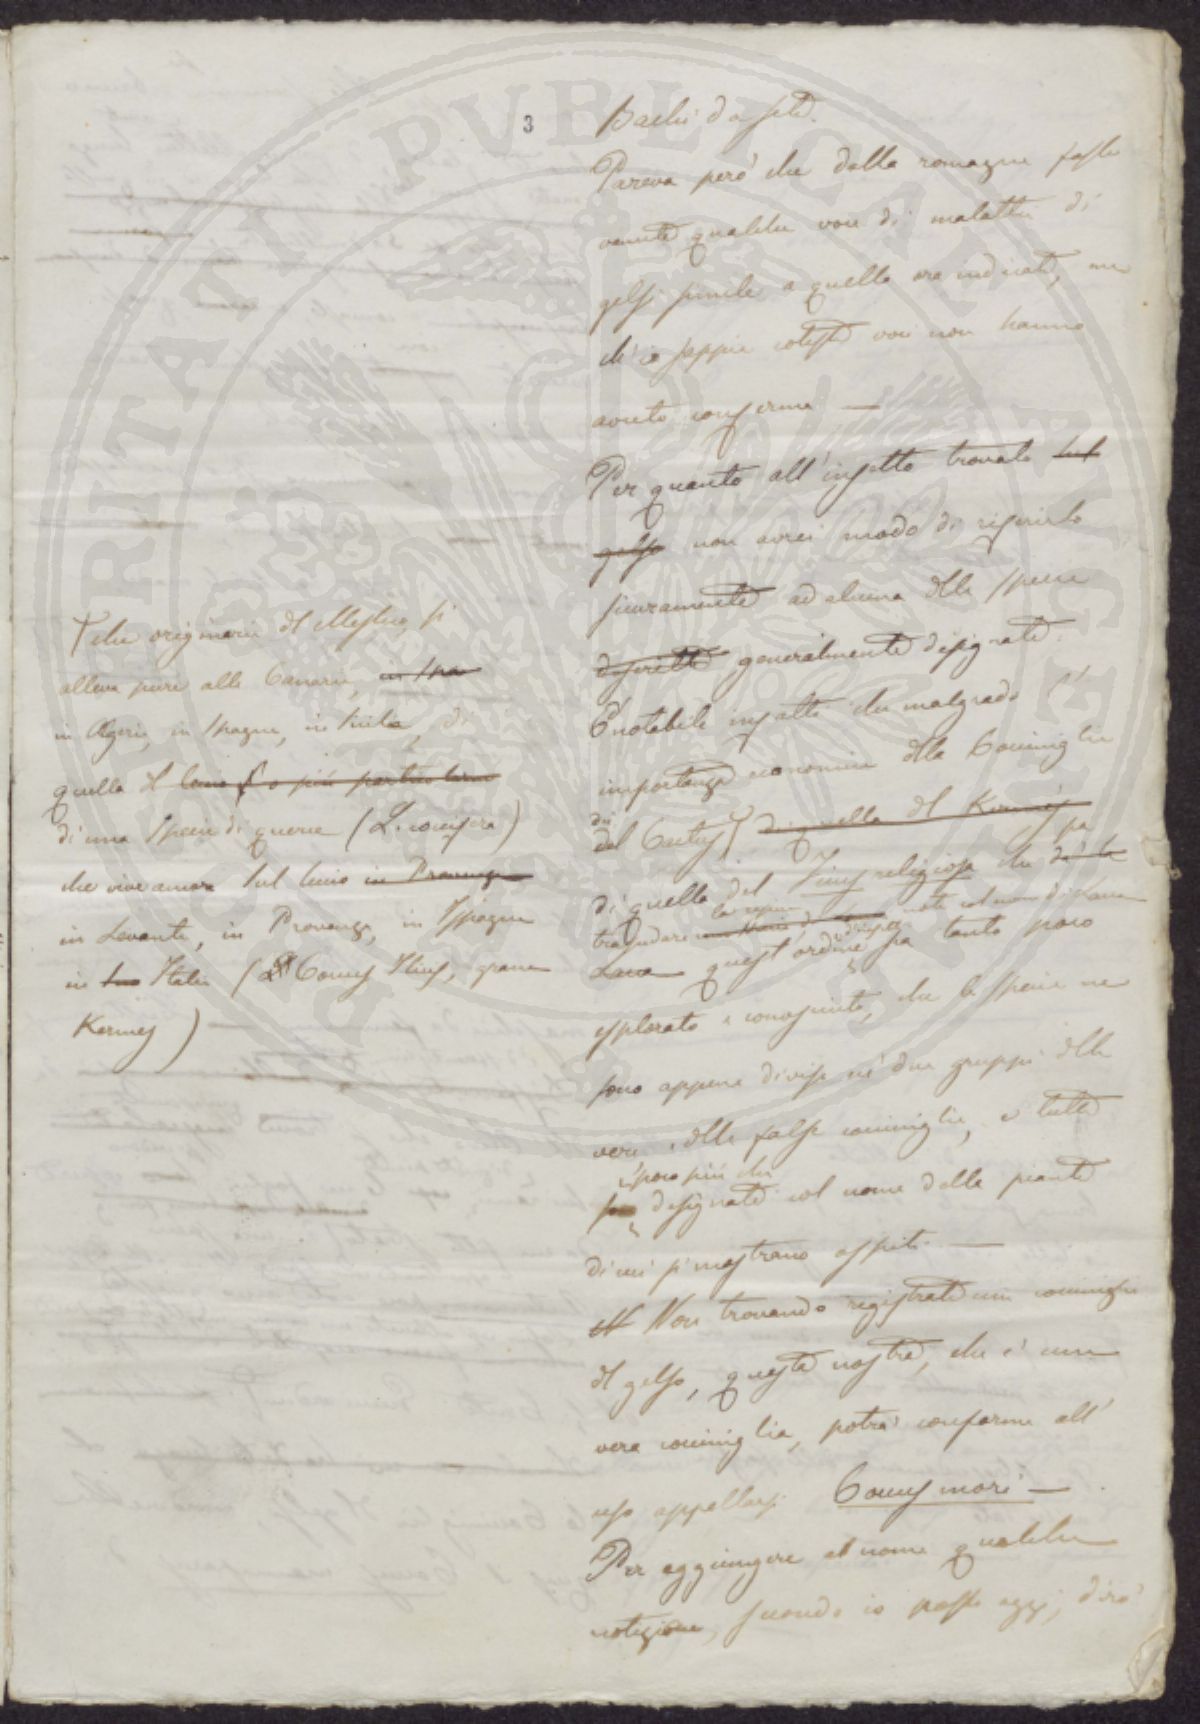 3
Bachi da seta.
Pareva però che dalla romagna fosse
venuta qualche voce di malattia di
gelsi simile a quella ora indicata, ma
ch'io sappia coteste voci non hanno
avuto conferma —
Per quanto all'insetto trovato sul
gelso non avrei modo di riferirlo
sicuramente ad alcuna delle specie
descritte generalmente designate.
È notabile infatti che malgrado l'
importanza economica della Cocciniglia
del Cactus di quella del Kermes
di quella del Ficus religiosa che fa
trasudare la resina nota col nome di Lacca
Lacca quest'ordine fra tanto poco
esplorato e conosciuto, che le specie ne
sono appena divise ne' due gruppi delle
vere e delle false cocciniglie, e tutte
poco più che
designate col nome delle piante
di cui si mostrano ospiti. —
Non trovando registrata una cocciniglia
del gelso, questa nostra, che è una
vera cocciniglia, potrà conforme all'
uso appellarsi Coccus mori —
Per aggiungere al nome qualche
notizia, secondo io posso oggi, dirò
che originaria del Messico, si
alleva pure alle Canarie, in Spa
in Algeria, in Spagna, in Sicilia, di
quella del leccio o più particolarmente
di una specie di quercia (Q. coccifera)
che vive ancora sul leccio in Provenza
in Levante, in Provenza, in Ispagna
in Italia (Coccus Ilicis, grana
Kermes)